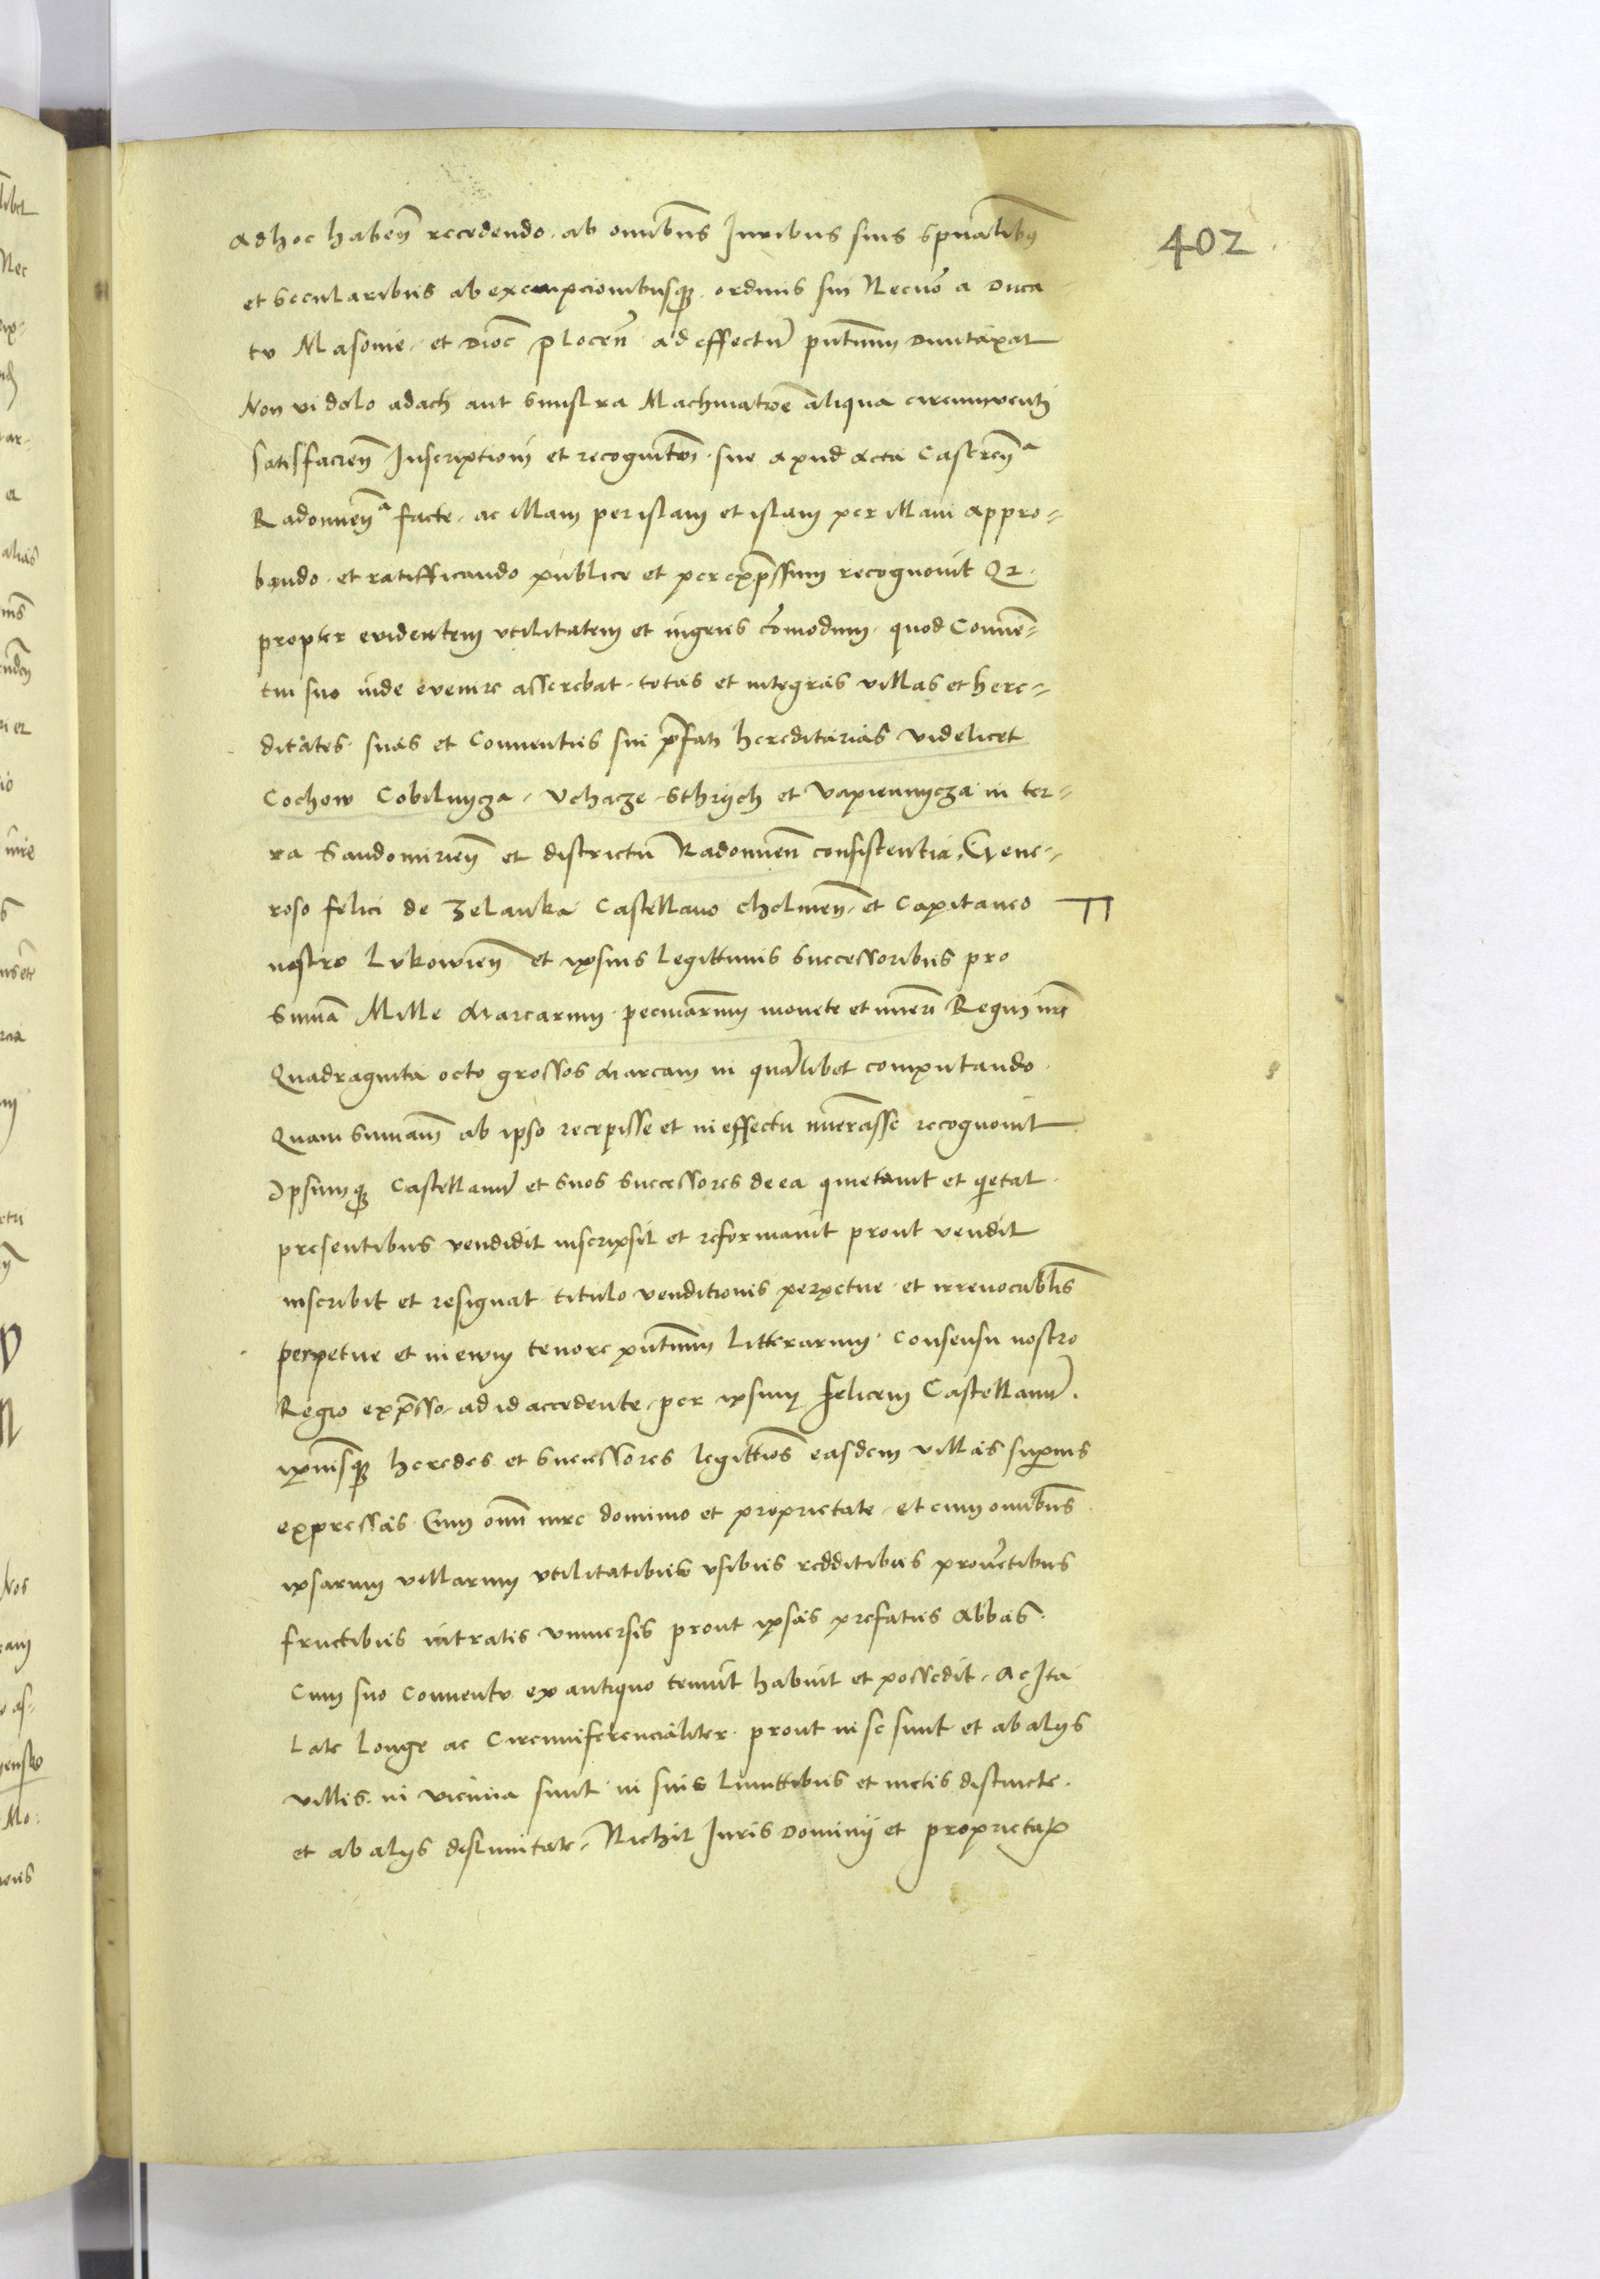 402
Adhoc haben̄ recedendo. ab om̄ibus Juribus suis sp̄ualibus
et secularibus ab exempcionibusq₃ ordinis sui Necnō a duca
tu Masouie. et dioc̄ plocen̄ ad effectū pn̄tium duntaxat
Non vi dolo adach aut sinistra Machinatōe aliqua circumuent9
satisfacien̄ Inscriptioni et recognitōi sue apud acta Castren̄a
Radomien̄a facte. ac illam per istam et istam per illam appro-
bando. et ratifficando publice et per exp̄ssum recognouit Q2
propter euidentem vtilitatem et ingens cōmodum. quod Conuen-
tui suo inde euenire asserebat. totas et integras villas et here-
ditates. suas et Conuentus sui p̄fati hereditarias videlicet
Cochow Cobilnycza. Vchacze. Sthrych et Vapiennycza in ter-
ra Sandomirien̄ et districtu Radomien̄ consistentia. Gene-
roso felici de Zelanka Castellano chelmen̄. et Capitaneo
nostro Lvkowien̄ et ipsius legittimis successoribus pro
summa Mille Marcarum pecuniarum monete et nūeri Regni nr̄i
Quadraginta octo grossos Marcam in quālibet computando.
Quam summam ab ipso recepisse et in effectu nūerasse recognouit
Ipsumq₃ Castellanū et suos successores de ea quietauit et q̄etat.
presentibus vendidit inscripsit et reformauit prout vendit
inscribit et resignat titulo venditionis perpetue. et irreuocabilis
perpetue et in ewm tenore pn̄tium litterarum. consensu nostro
Regio exp̄sso. ad id accedente. per ipsum Felicem Castellanū.
ipsiusq₃ heredes et successores legittīos easdem villas superius
expressas. Cum om̄i iure dominio et proprietate. et cum om̄ibus
ipsarum villarum vtilitatibus vsibus redditibus prouētibus
fructibus intratis vniuersis prout ipsas prefatus Abbas.
Cum suo conuentu ex antiquo tenuit habuit et possedit. Ac Ita
Late longe ac Circumferencialiter. prout in se sunt et ab alys
villis. in vicinia sunt in suis limittibus et metis distincte.
et ab alys deslimitate. Nichil Juris dominij et proprietatis